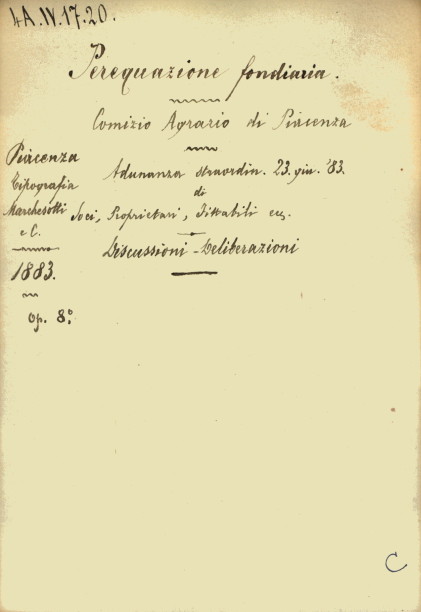 4A.IV.17.20.
Perequazione fondiaria.
Comizio Agrario di Piacenza
Adunanza straordin. 23. giu. '83.
di
Soci, Proprietari, Fittabili ecc.
Discussioni - Deliberazioni
Piacenza
Tipografia
Marchesotti
e C.
1883.
Op. 8°
C